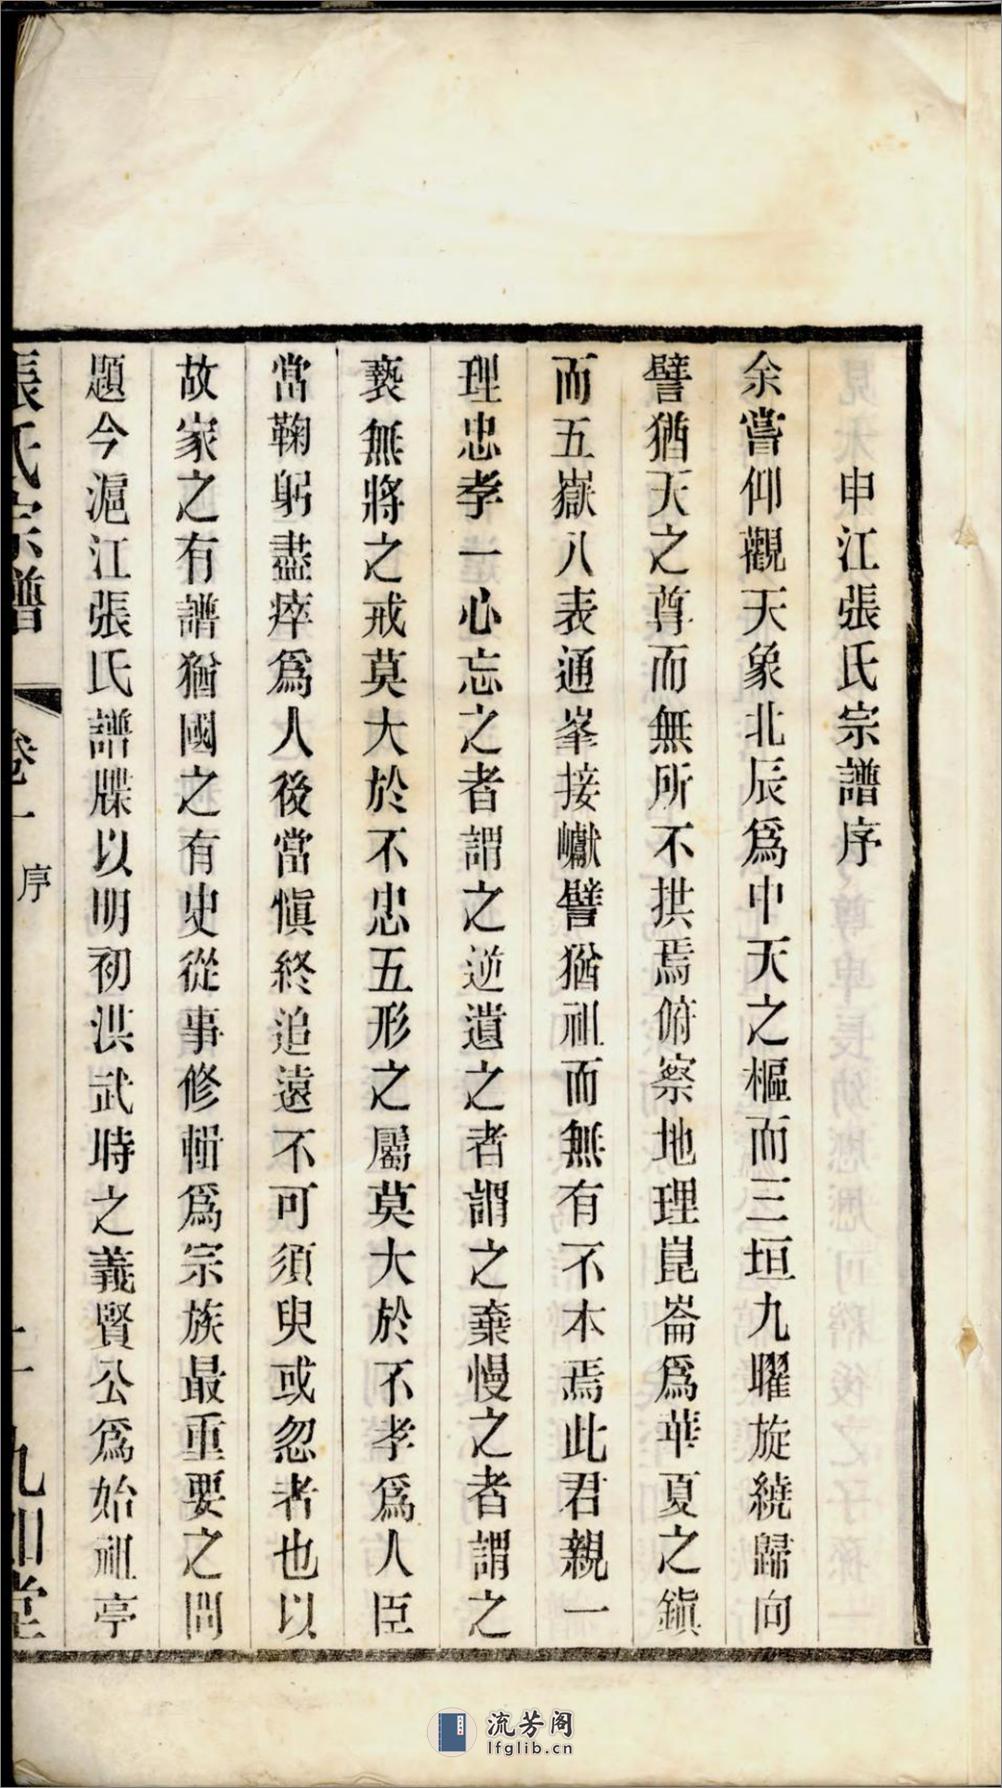 申江張氏宗譜序
余嘗仰觀天象北辰爲中天之樞而三垣九曜旋繞歸向
譬猶天之尊而無所不拱焉俯察地理崑崙爲華夏之鎭
而五嶽八表通峯接巘譬猶祖而無有不本焉此君親一
理忠孝一心忘之者謂之逆遺之者謂之棄慢之者謂之
褻無將之戒莫大於不忠五形之屬莫大於不孝爲人臣
當鞠躬盡瘁爲人後當愼終追遠不可須臾或忽者也以
故家之有譜猶國之有史從事修輯爲宗族最重要之問
題今滬江張氏譜牒以明初洪武時之義賢公爲始祖亭
張氏宗譜 卷一 序 九如堂
流芳阁
lfglib.cn